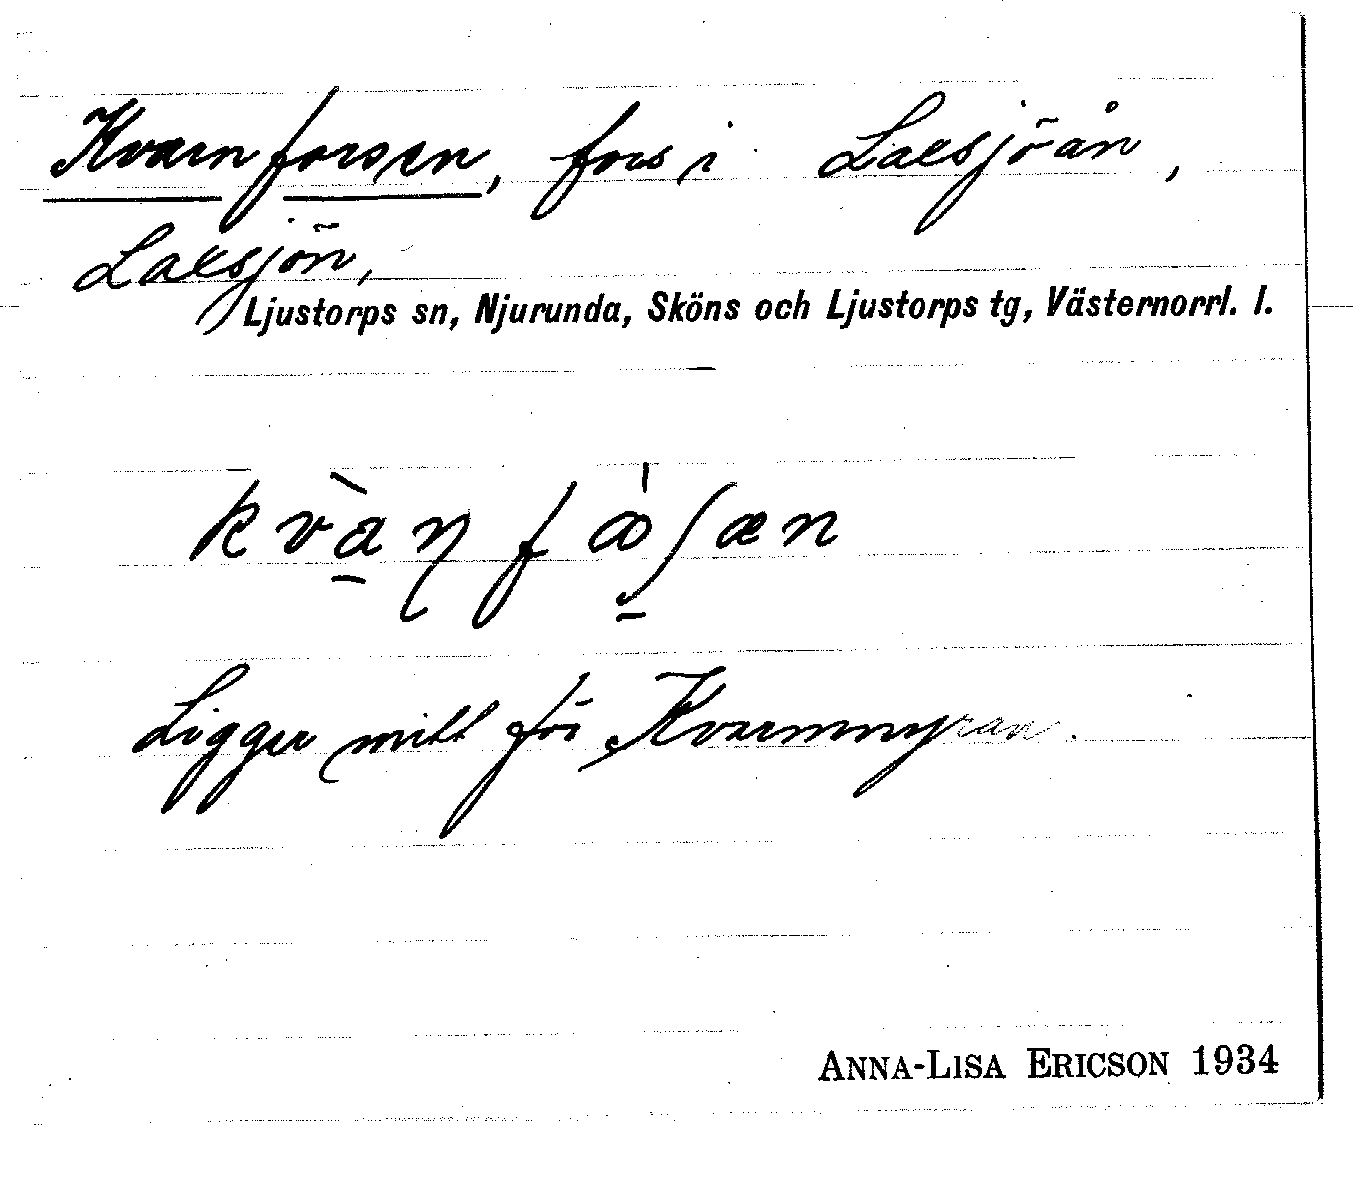 Kvarnforsen, fors i Laxsjöån,
Laxsjön,
Ljustorps sn, Njurunda, Sköns och Ljustorps tg, Västernorrl. l.
Ligger mitt för Kvarnmyran.
ANNA-LISA ERICSON 1934